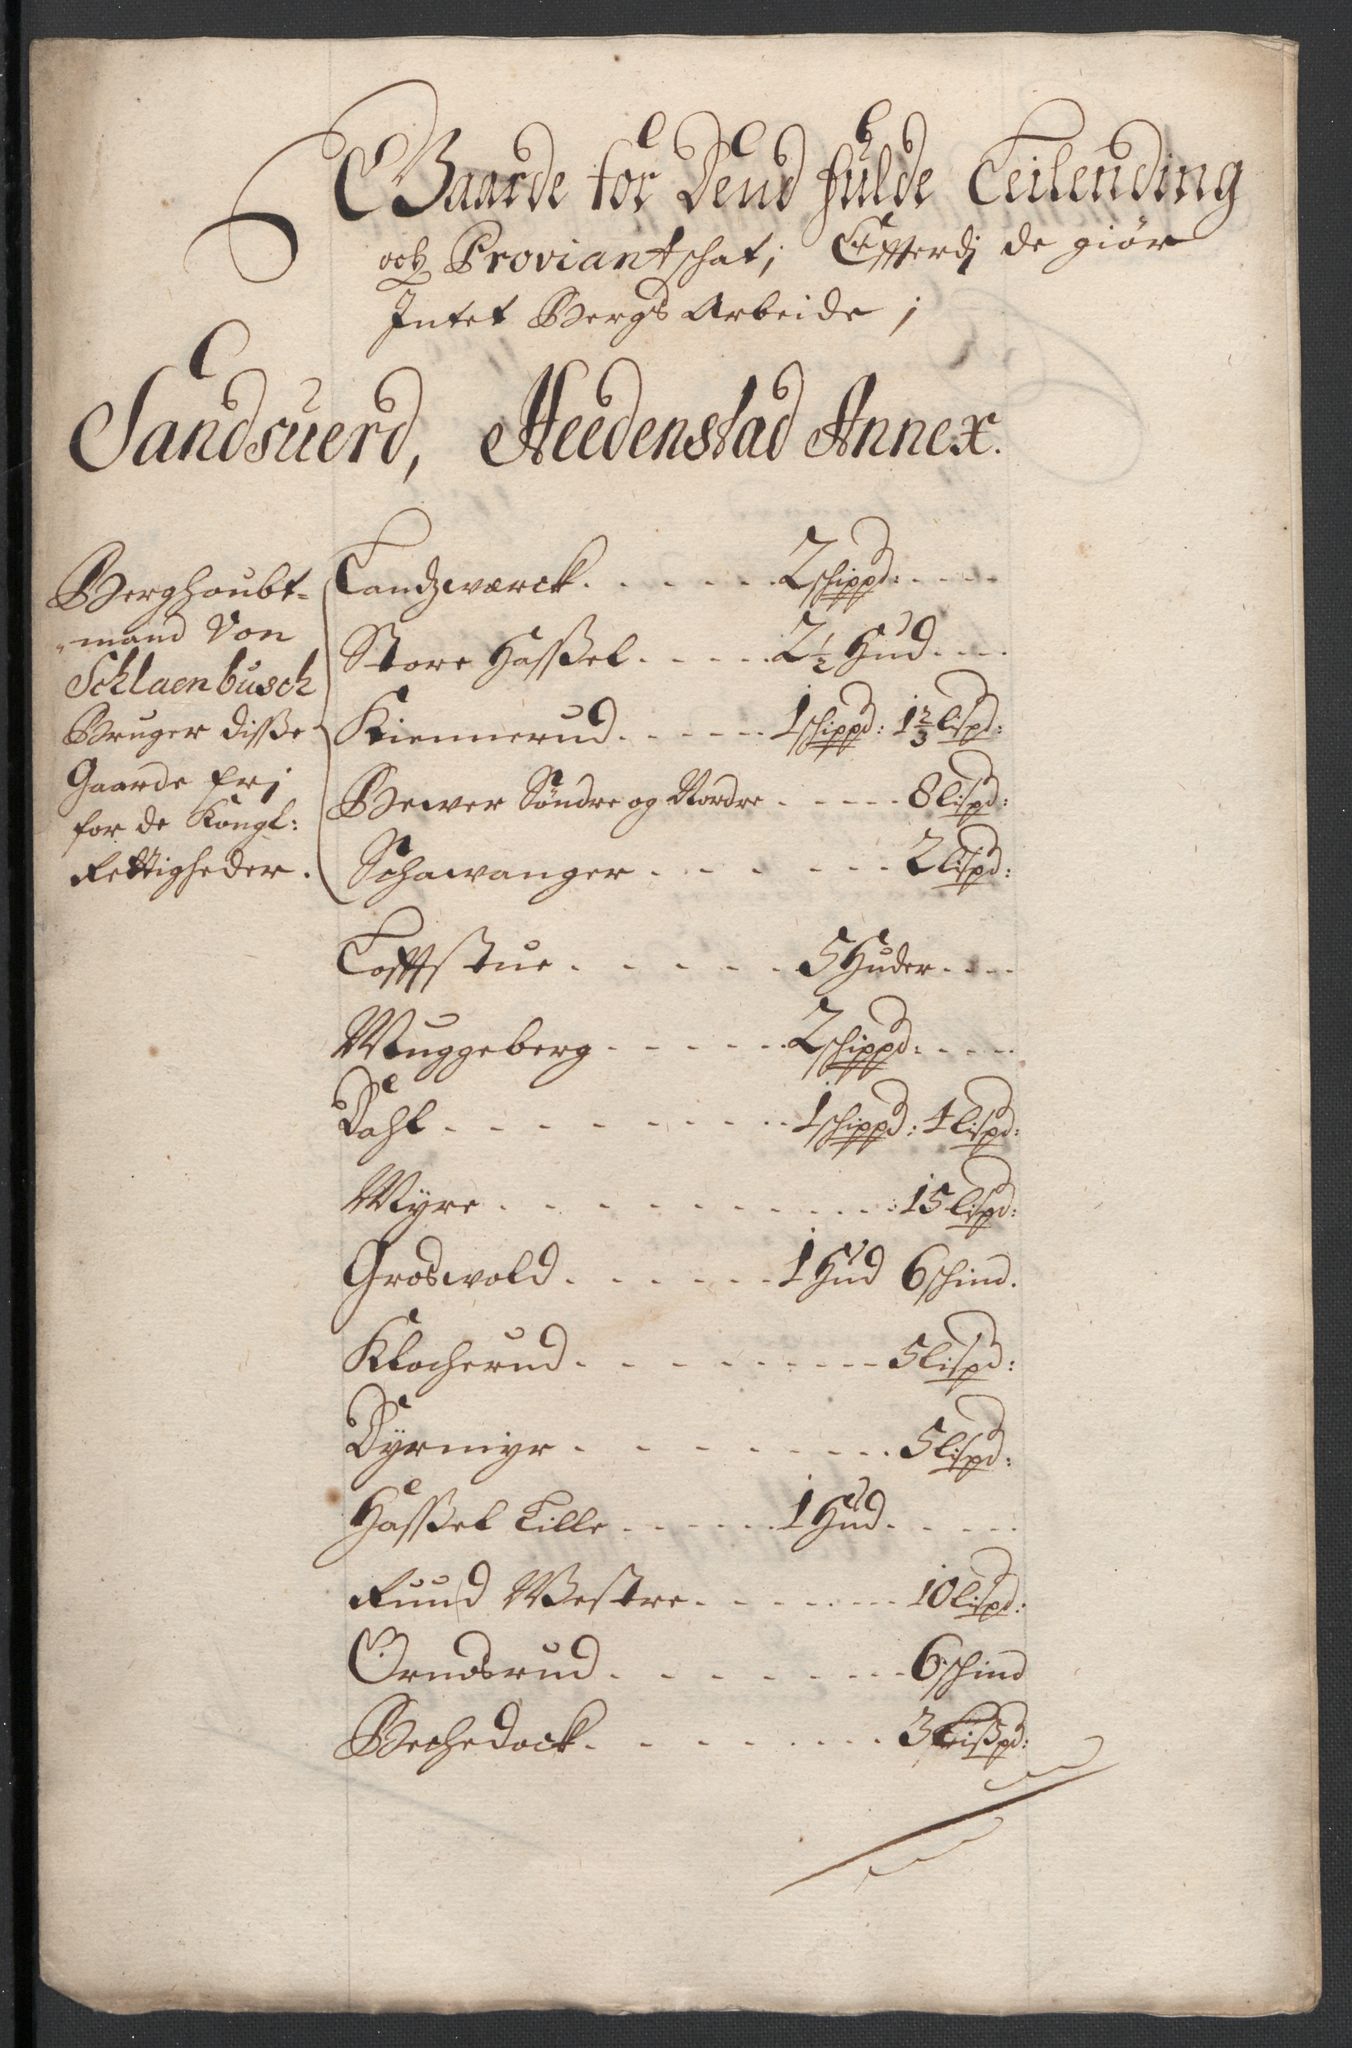 Gaarde for Dend fulde Leilending
och Proviantschat; Efferdj de giør
Intet Bergs Arbeide;
Sandsuerd, Heedenstad Annex.
Berghoubt-
-mand Von
Schlaenbusch
Bruger disse
Gaarde frj
for de Kongl:
Rettigheder.
Landzwærck. 2 schippd:
Store Hassel. 2 1/2 Hud
Kiennerud. 1 schippd: 1 2/3 lispd:
Bewer Søndre og Nordre 8 lispd:
Schawanger 2 lispd:
Tofftstue. 5 Huder
Muggeberg 2 schippd.
Dahl 1 schippd: 4 lispd:
Myre 15 lispd:
Groswold. 1 Hud 6 schind.
Klocherud. 5 lispd:
Dyrmyr 5 lispd:
Hassel Lille 1 Hud
Ruud Westre 10 lispd:
Ornosrud. 6 schind
Bechedock. 3 Lisspd: